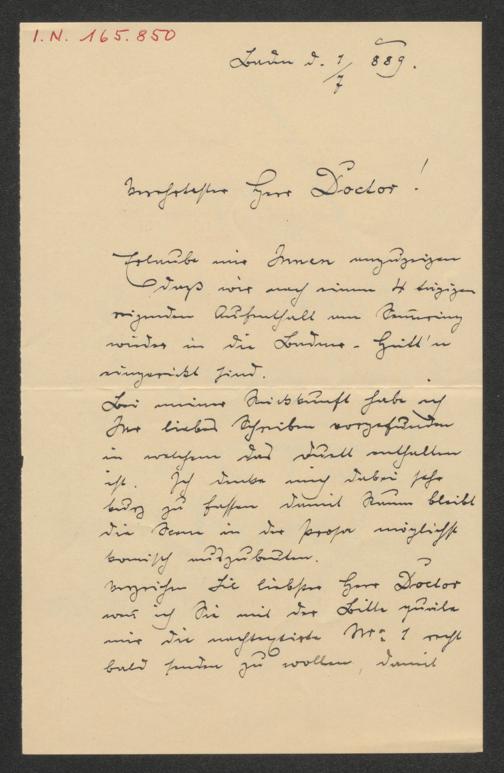 I.N. 165.850
Baden d. 1/7 889.
Verehrtester Herr Doctor!
Erlaube mir Ihnen anzuzeigen
daß wir nach einem 4 tägigen
reizenden Aufenthalt am Semering
wieder in die Badner-Hütt'n
eingerückt sind.
Bei meiner Rückkunft habe ich
Ihr liebes Schreiben vorgefunden
in welchem das Duett enthalten
ist. Ich denke mich dabei sehr
kurz zu fassen damit Raum bleibt
die Scene in der Prosa möglichst
komisch auszubeuten.
Verzeihen Sie liebster Herr Doctor
wenn ich Sie mit der Bitte quäle
mir die Nro 1 recht
bald senden zu wollen, damit